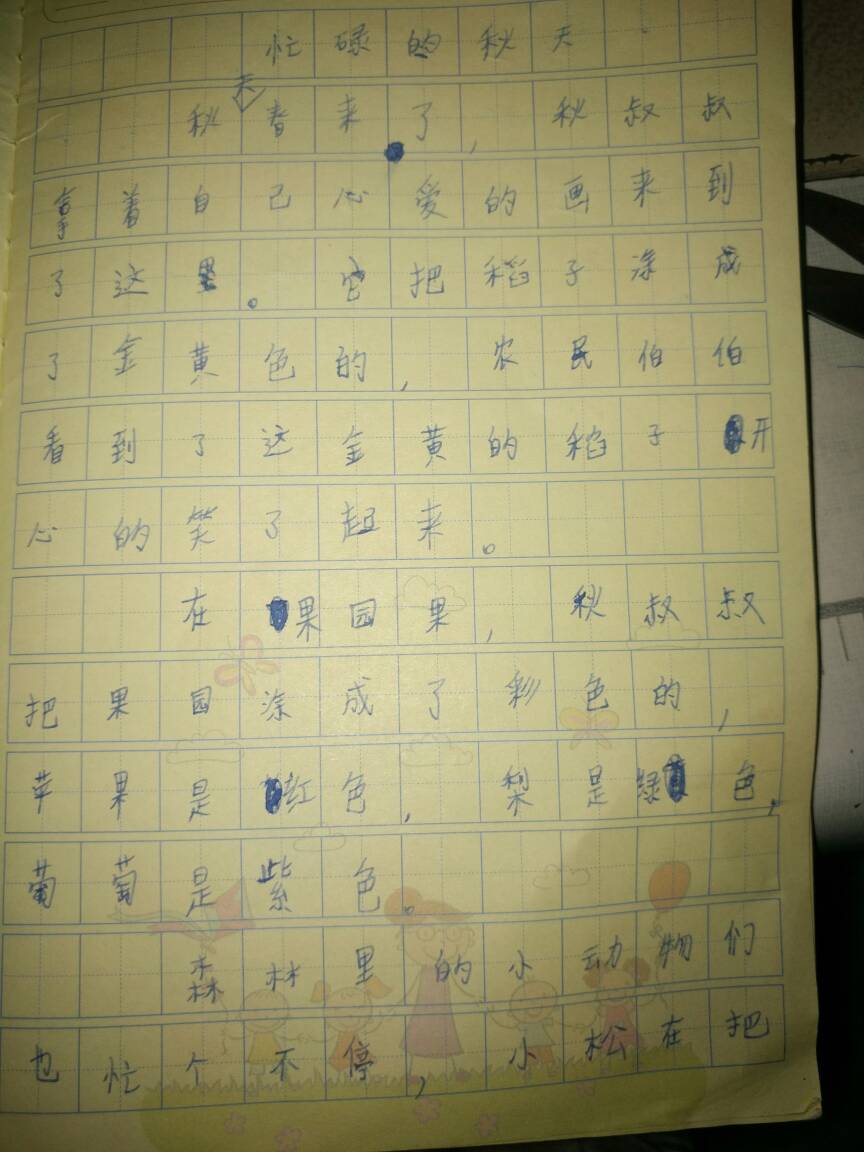 忙碌的秋天
秋天春来了,秋叔叔
拿着自己心爱的画来到
了这里。它把稻子涂成
了金黄色的,农民伯伯
看到了这金黄的稻子开
心的笑了起来。
在果园果,秋叔叔
把果园涂成了彩色的,
苹果是红色,梨是绿色,
葡萄是紫色。
森林里的小动物们
也忙个不停,小松在把